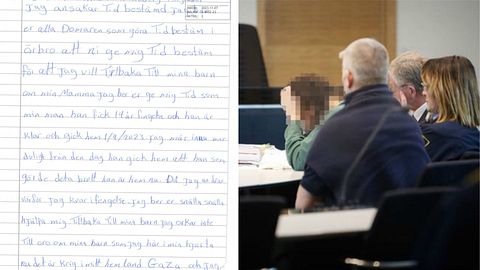 Jag ansökar Tid bestämd
er alla Domaren som göra Tid bestäm i
örbro att ni ge mig Tid bestäm
för att jag vill Tirlbaka Till mina barn
om min Mamma jag ber er ge mig Tid som
min man han fick 14 år fingelse och han är
klar och gick hem 1/9/2023 jag mår inn mer
doligt från den dag han gick hem att han sen
görde deta brett han är hem nu. Då jag undrar
varför jag kvar i fengelse. jag ber er snälla snälla
hjälpa mig Tirlbaka Till min barn jag orkar inte
Till oro om mina barn som jag här i min hjärta
nu det är krig i mitt hem land Gaza och jag